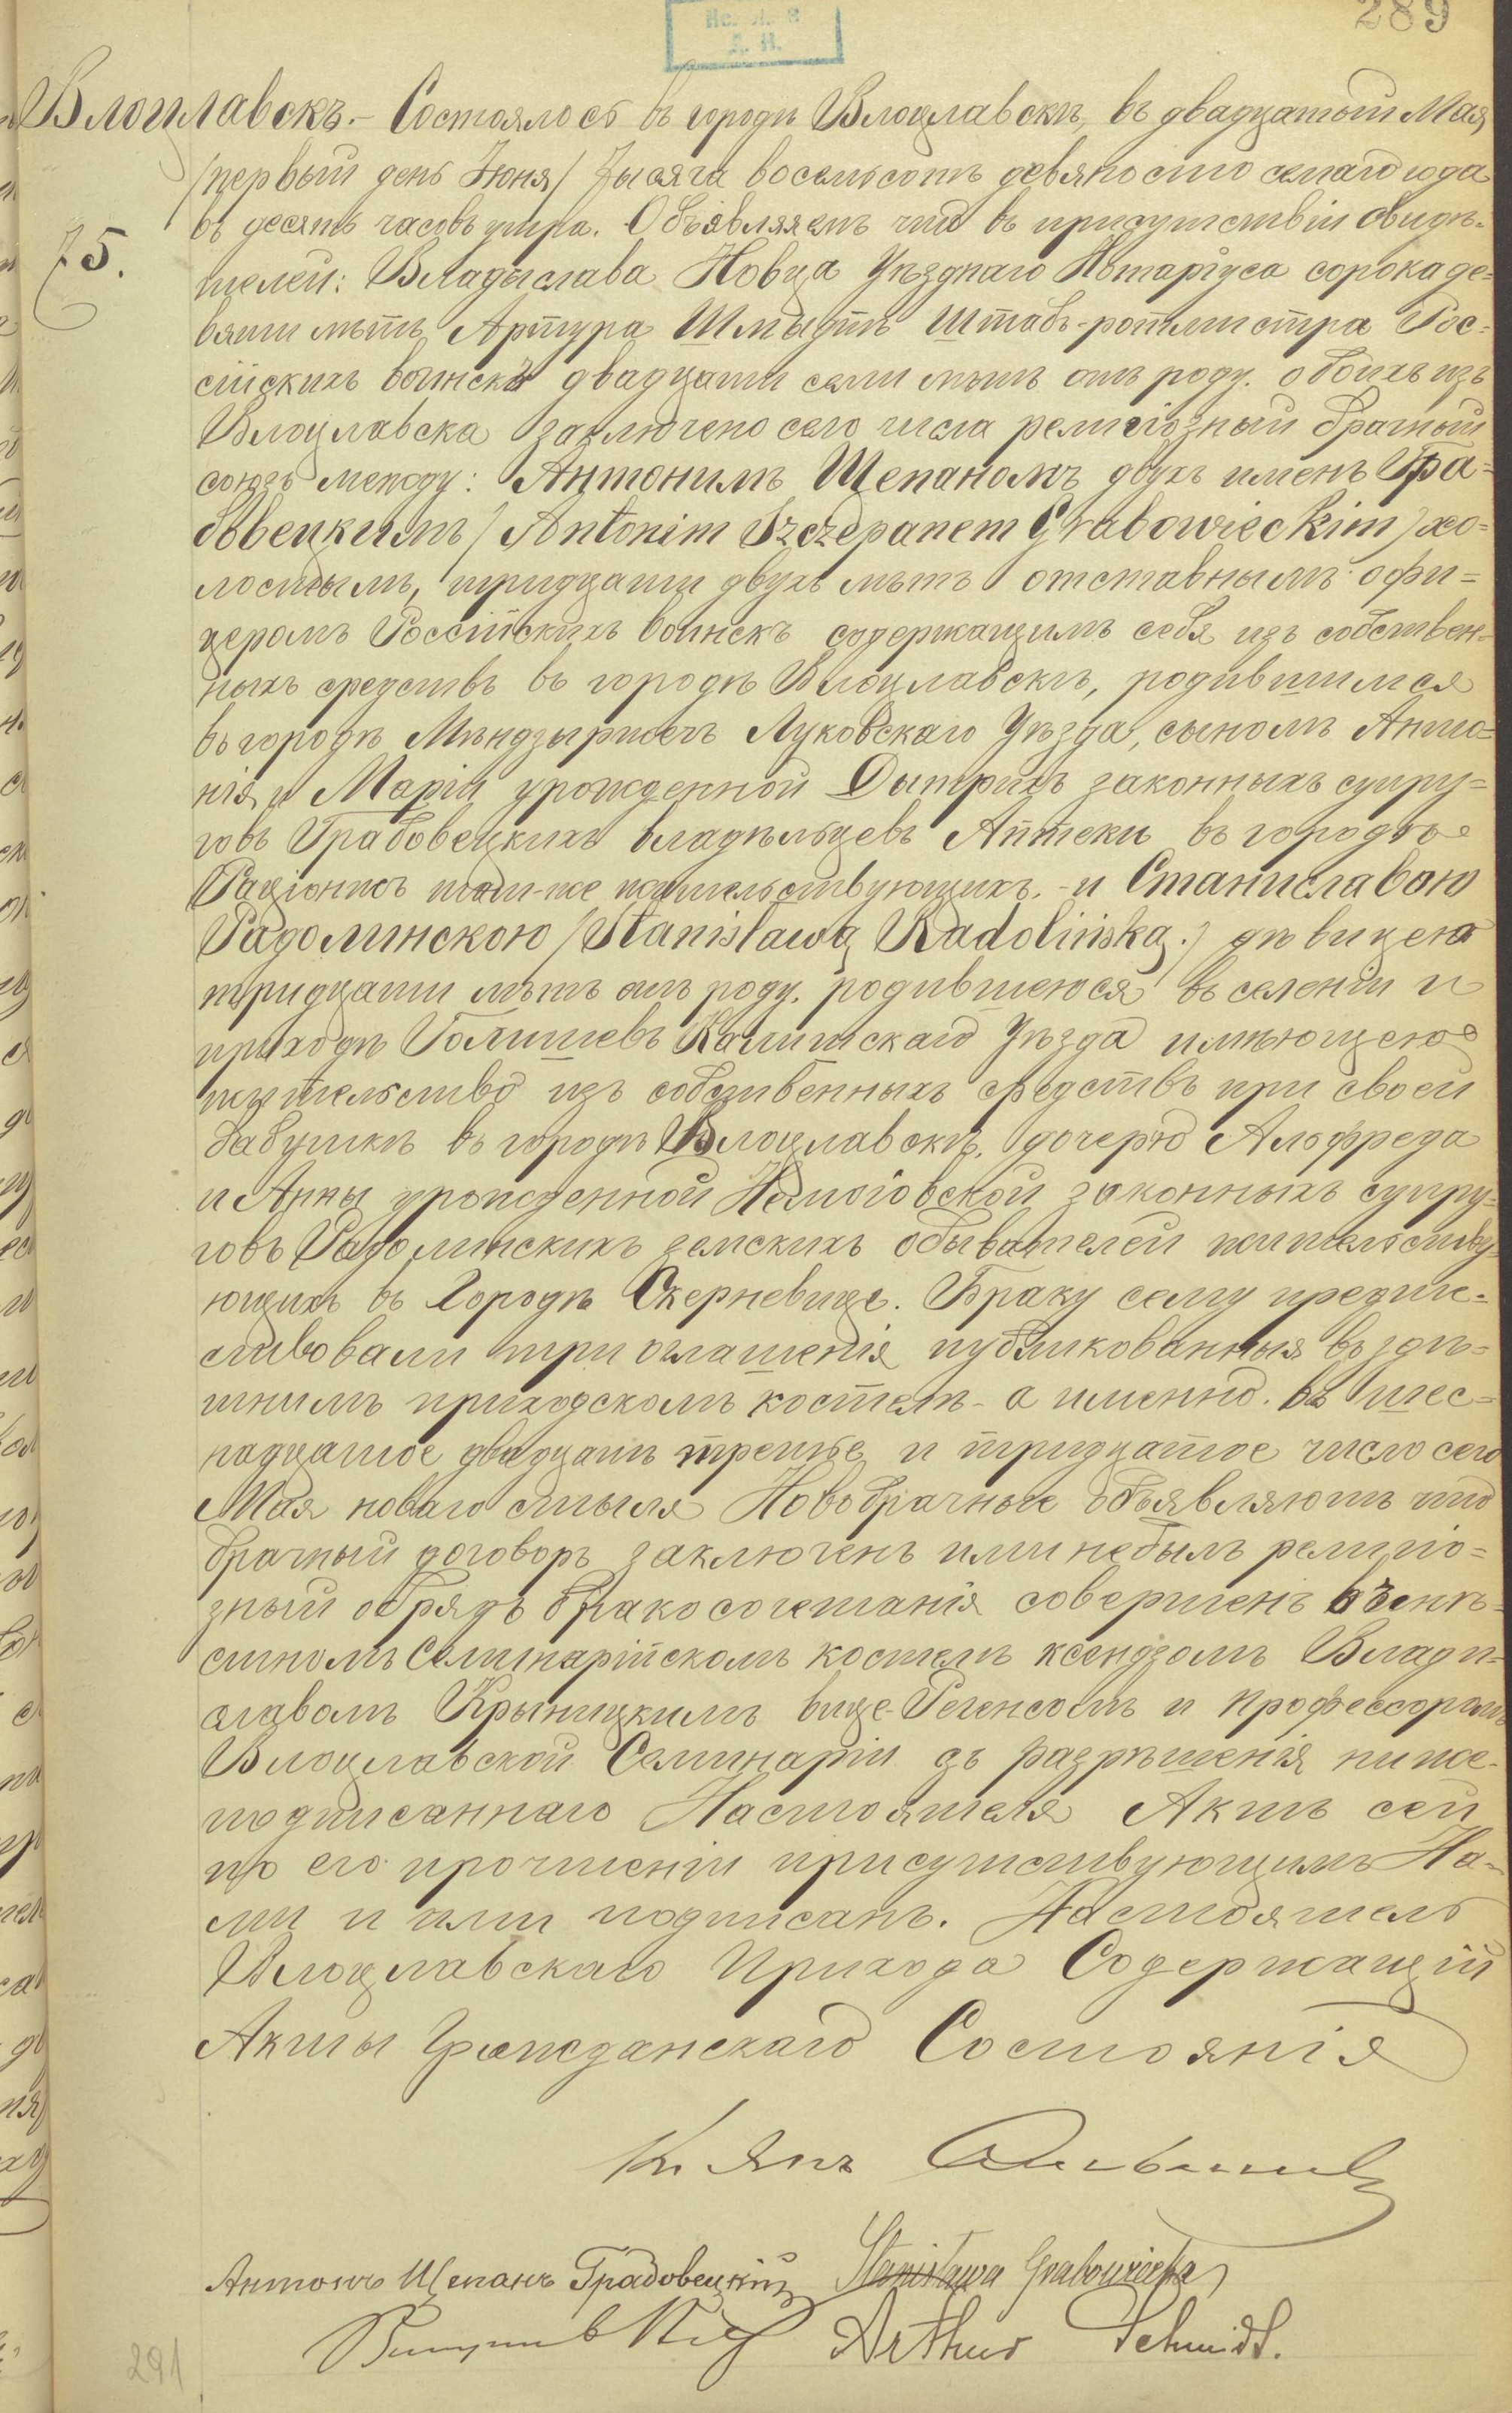 289
Влоцлавскъ.- Состоялось въ городѣ Влоцлавскѣ, въ двадцатый Мая
/первый день Іюня/ тысяча восемьсотъ девяносто седьмаго года
въ десять часовъ утра. Объявляемъ что въ присутствіи свидѣ-
75.
телей: Владыслава Новца Уѣзднаго Нотаріуса сорока де-
вяти лѣтъ Артура Шмыдтъ Штабъ-ротмистра Рос-
сійскихъ воинскъ двадцати семи лѣтъ отъ роду. обоихъ изъ
Влоцлавска заключено сего числа религіозный брачный
союзъ между: Антонимъ Щепаномъ двухъ именъ Гра-
бовецкимъ /Antonim Szczepanem Grabowieckim/ хо-
лостымъ, тридцати двухъ лѣтъ отставнымъ офи-
церомъ Россійскихъ воинскъ содержащимъ себя изъ собствен-
ныхъ средствъ въ городѣ Влоцлавскѣ, родившимся
въ городѣ Мѣндзыржечъ Луковскаго Уѣзда, сыномъ Анто-
нія и Маріи урожденной Дытрихъ законныхъ супру-
говъ Грабовецкихъ владѣльцевъ Аптеки въ городѣ
Раціонжъ тамъ-же жительствующихъ.- и Станиславою
Радолинскою /Stanisławą Radolińską./ дѣвицею
тридцати лѣтъ отъ роду. родившеюся въ селеніи и
приходѣ Голишевъ Калишскаго Уѣзда имѣющею
жительство изъ собственныхъ средствъ при своей
бабушкѣ въ городѣ Влоцлавскѣ, дочерью Альфреда
и Анны урожденной Немоіовской законныхъ супру-
говъ Радолинскихъ земскихъ обывателей жительству-
ющихъ въ Городѣ Скерневице. Браку сему предше-
ствовали три оглашенія публикованныя въ здѣ-
шнимъ приходскомъ костелѣ - а именно. въ шес-
надцатое двадцать третье и тридцатое число сего
Мая новаго стыля Новобрачные объявляютъ что
брачный договоръ заключенъ ими небылъ религіо-
зный обрядъ бракосочетанія совершенъ въ мѣ-
стномъ Семинарійскомъ костелѣ ксендзомъ Влади-
славомъ Крыницкимъ вице-Регенсомъ и профессоромъ
Влоцлавской Семинаріи съ разрѣшенія ниже-
подписаннаго Настоятеля Актъ сей
по его прочтеніи присутствующимъ На-
ми и ими подписанъ. Настоятель
Влоцлавскаго Прихода Содержащій
Акты Гражданскаго Состоянія
Антонъ Щепанъ Грабовецкій Stanisława Grabowiecka
Arthur Schmidt.
291